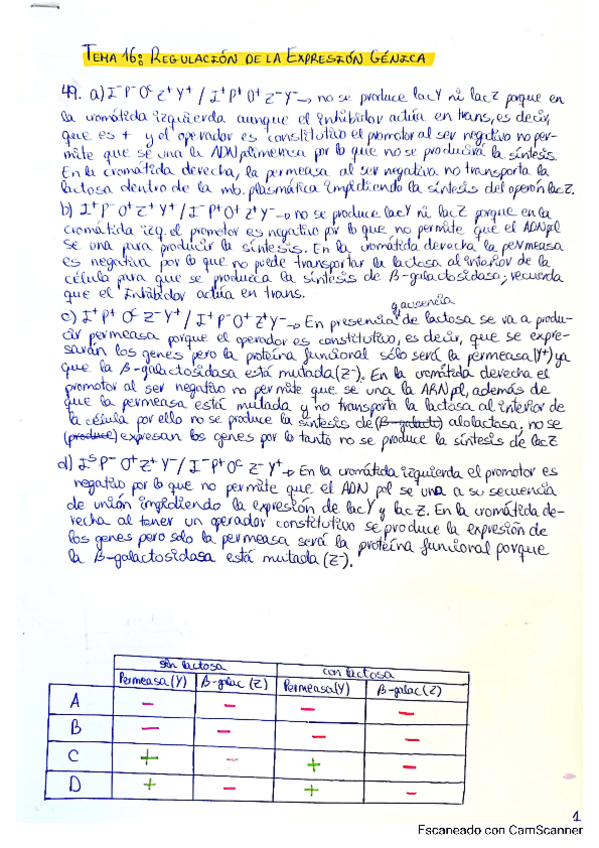 TEMA 16: REGULACIÓN DE LA EXPRESIÓN GÉNICA
49. a) I⁻ P⁻ Oᶜ Z⁺ Y⁺ / I⁺ P⁺ O⁺ Z⁻ Y⁻ → no se produce lacY ni lacZ porque en
la cromátida izquierda aunque el inhibidor actúa en trans, es decir,
que es + y el operador es constitutivo el promotor al ser negativo no per-
mite que se una la ADN polimerasa por lo que no se producirá la síntesis.
En la cromátida derecha, la permeasa al ser negativa no transporta la
lactosa dentro de la mb. plasmática impidiendo la síntesis del operón lacZ.
b) I⁺ P⁻ O⁺ Z⁺ Y⁺ / I⁻ P⁺ O⁺ Z⁺ Y⁻ → no se produce lacY ni lacZ porque en la
cromátida izq. el promotor es negativo por lo que no permite que el ADNpl
se una para producir la síntesis. En la cromátida derecha la permeasa
es negativa por lo que no puede transportar la lactosa al interior de la
célula para que se produzca la síntesis de β-galactosidasa; recuerda
que el Inhibidor actúa en trans.
y ausencia
c) I⁺ P⁺ Oᶜ Z⁻ Y⁺ / I⁺ P⁻ O⁺ Z⁺ Y⁻ → En presencia de lactosa se va a produ-
cir permeasa porque el operador es constitutivo, es decir, que se expre-
sarán los genes pero la proteína funcional sólo será la permeasa (Y⁺) ya
que la β-galactosidasa está mutada (Z⁻). En la cromátida derecha el
promotor al ser negativo no permite que se una la ARNpl, además de
que la permeasa está mutada y no transporta la lactosa al interior de
la célula por ello no se produce la síntesis de (β-galacto) alolactosa, no se
(produce) expresan los genes por lo tanto no se produce la síntesis de lacZ
d) Iˢ P⁻ O⁺ Z⁺ Y⁻ / I⁻ P⁺ Oᶜ Z⁻ Y⁺ → En la cromátida izquierda el promotor es
negativo por lo que no permite que el ADN pol se una a su secuencia
de unión impidiendo la expresión de lacY y lacZ. En la cromátida de-
recha al tener un operador constitutivo se produce la expresión de
los genes pero solo la permeasa será la proteína funcional porque
la β-galactosidasa está mutada (Z⁻).
sin lactosa con lactosa
Permeasa (Y) β-galac (Z) Permeasa (Y) β-galac (Z)
A - - - -
B - - - -
C + - + -
D + - + -
1
Escaneado con CamScanner